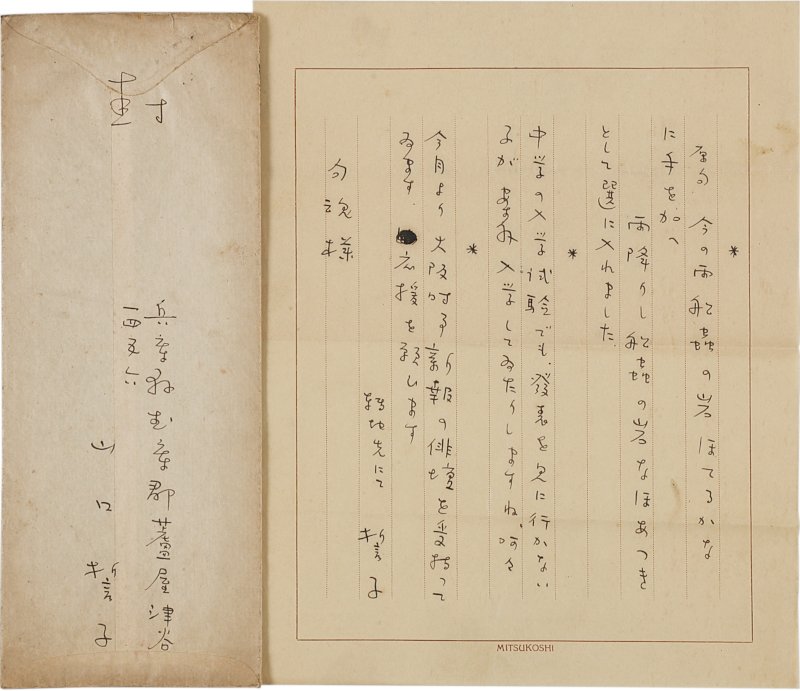 *
原句 今の雨船蟲の岩ほてるかな
に手を加へ
雨降りし船蟲の岩なほあつき
として選に入れました。
*
中学の入学試験でも、發表を見に行かない
子が 入学してゐたりしますね。呵々
*
今月より大阪時事新報の俳壇を受持って
ゐます。応援を願ひます
轉地先にて 誓子
句魂様
MITSUKOSHI
封
兵庫縣武庫郡蘆屋津谷
一四五六
山口誓子